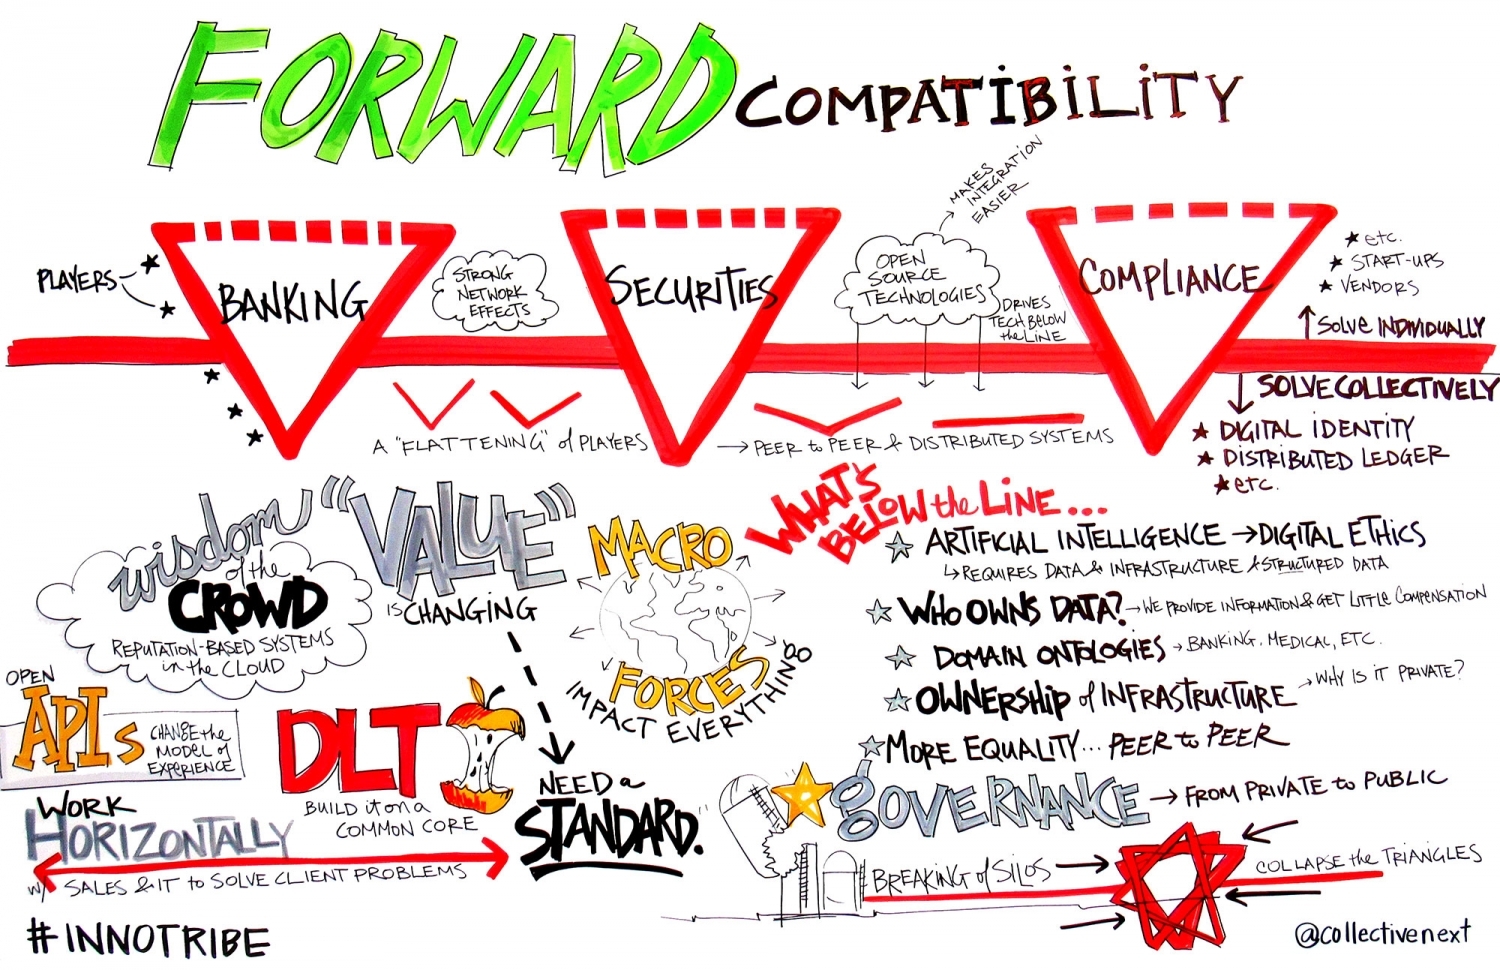 FORWARD COMPATIBILITY
MAKES
INTEGRATION
EASIER
PLAYERS
BANKING
STRONG
NETWORK
EFFECTS
SECURITIES
OPEN
SOURCE
TECHNOLOGIES
DRIVES
TECH BELOW
the LINE
COMPLIANCE
etc.
START-UPS
VENDORS
SOLVE INDIVIDUALLY
SOLVE COLLECTIVELY
DIGITAL IDENTITY
DISTRIBUTED LEDGER
etc.
A "FLATTENING" of PLAYERS → PEER to PEER & DISTRIBUTED SYSTEMS
wisdom
of the
CROWD
REPUTATION-BASED SYSTEMS
in the CLOUD
"VALUE"
IS CHANGING
NEED a
STANDARD.
MACRO
FORCES
IMPACT EVERYTHING
WHAT'S
BELOW the LINE...
ARTIFICIAL INTELLIGENCE → DIGITAL ETHICS
↳ REQUIRES DATA & INFRASTRUCTURE & STRUCTURED DATA
WHO OWNS DATA? → WE PROVIDE INFORMATION & GET LITTLE COMPENSATION
DOMAIN ONTOLOGIES → BANKING. MEDICAL, ETC.
OWNERSHIP of INFRASTRUCTURE → WHY IS IT PRIVATE?
MORE EQUALITY... PEER to PEER
OPEN
APIs
CHANGE the
MODEL of
EXPERIENCE
DLT
BUILD it on a
COMMON CORE
WORK
HORIZONTALLY
w/ SALES & IT to SOLVE CLIENT PROBLEMS
GOVERNANCE → FROM PRIVATE to PUBLIC
BREAKING of SILOS
COLLAPSE the TRIANGLES
#INNOTRIBE
@collectivenext